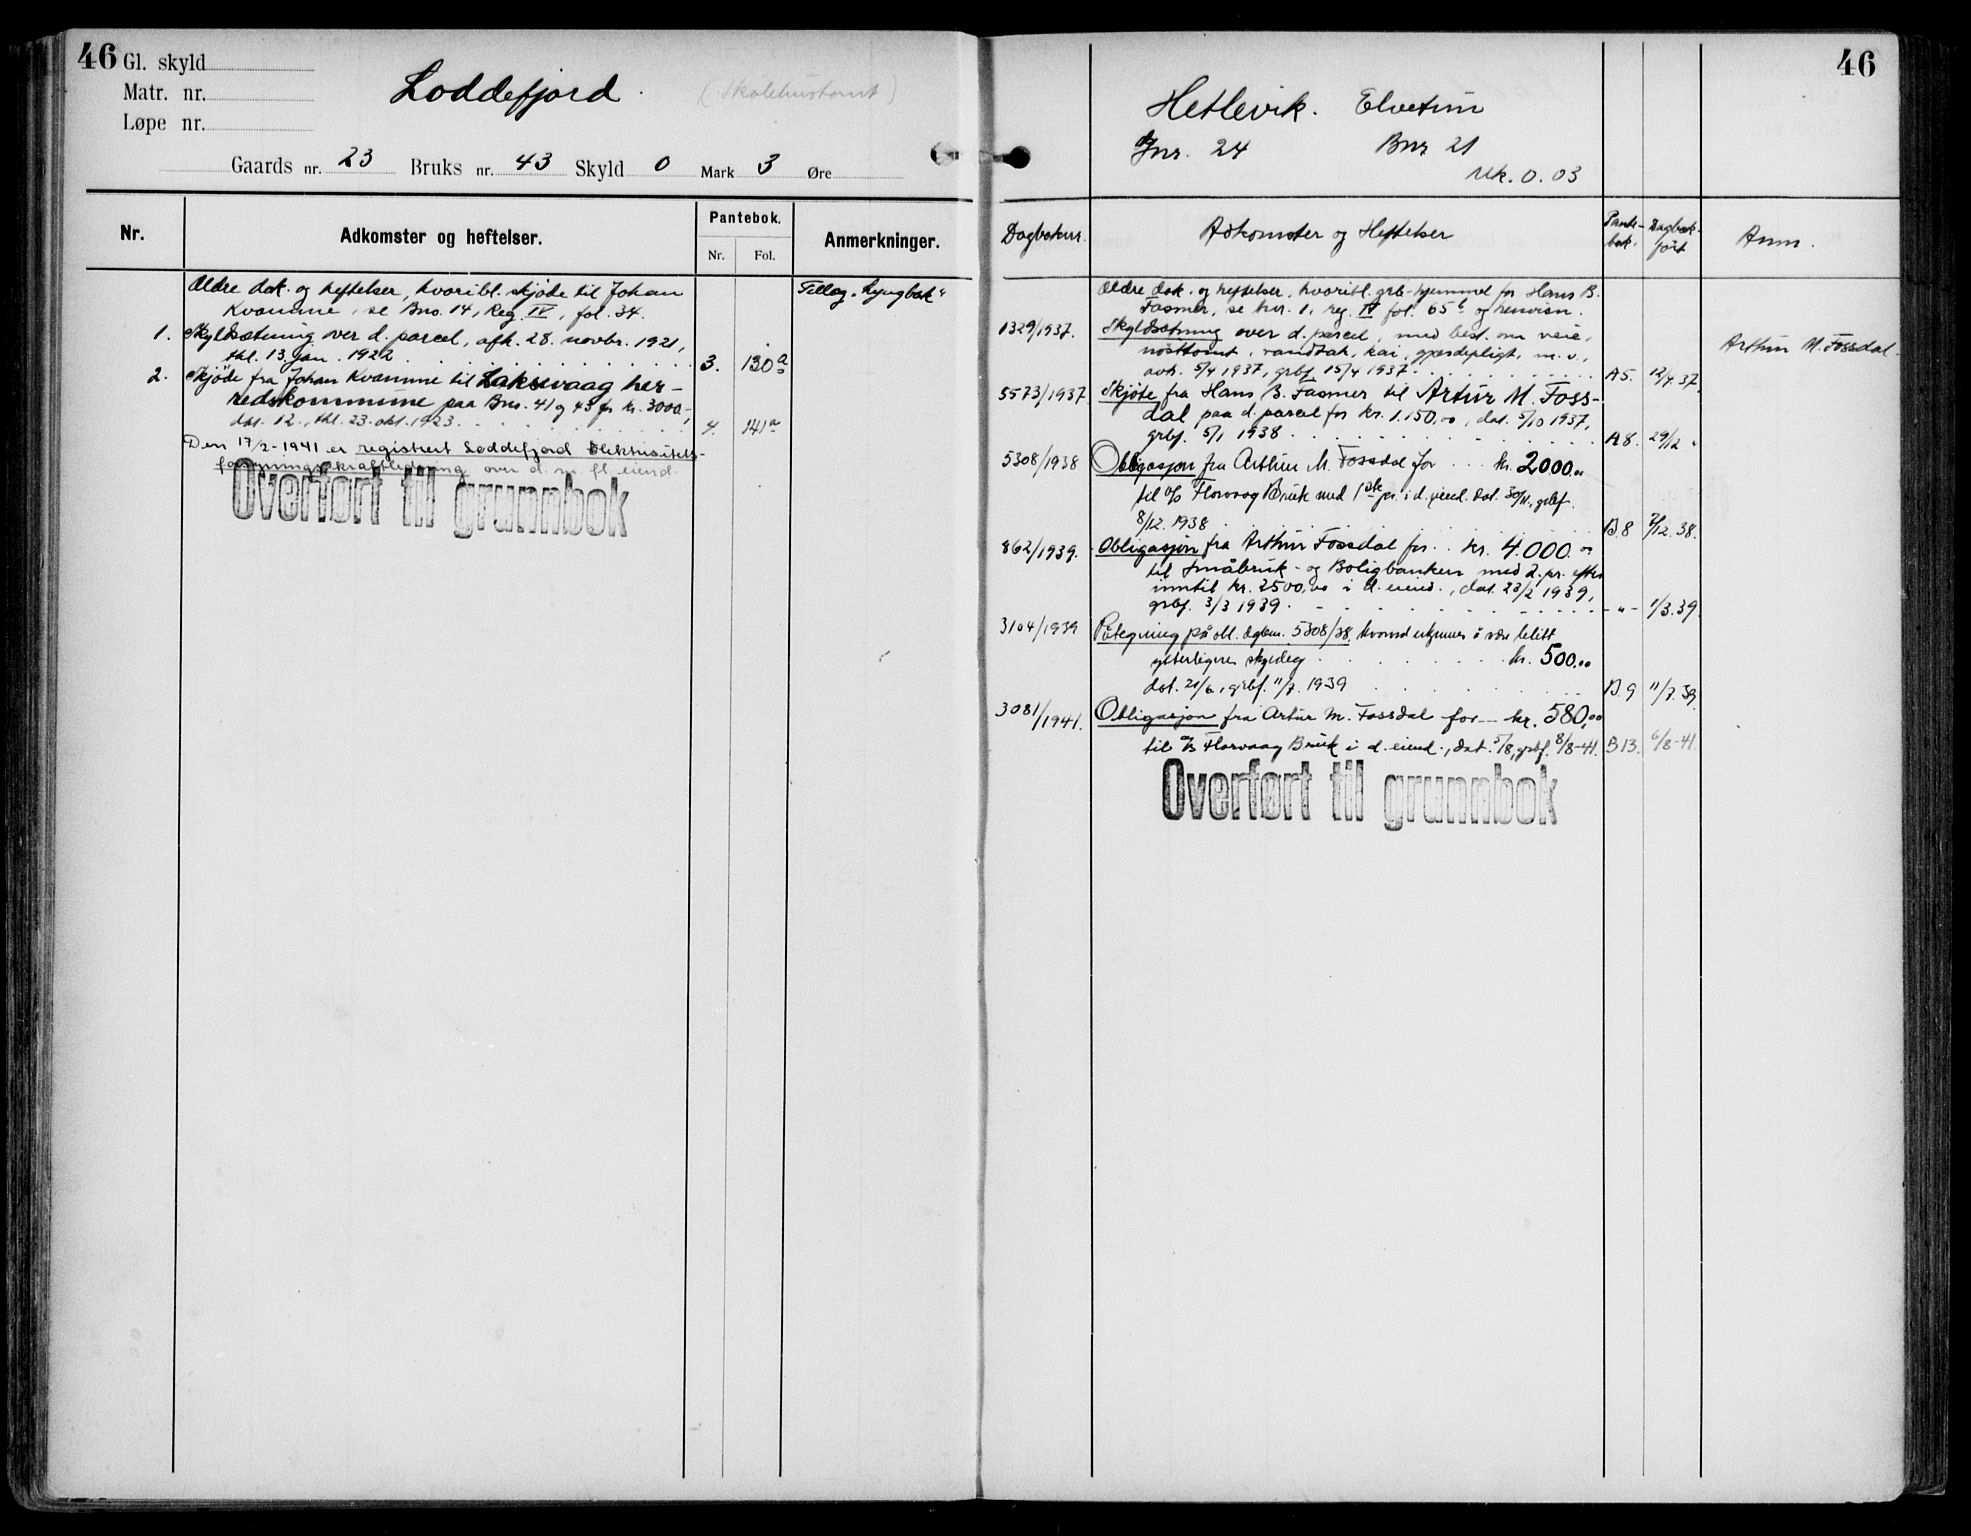 46 Gl. skyld
Matr. nr.
Løpe nr.
Loddefjord. (Skolehustomt)
Gaards nr. 23 Bruks nr. 43 Skyld 0 Mark 3 Øre
Nr.
Adkomster og heftelser.
Pantebok.
Nr. Fol.
Anmerkninger.
Ældre dok. og heftelser, hvoribl. skjøde til Johan
Kvamme, se Bno. 14, Reg. IV, fol. 34.
Tillæg "Lyngbøk"
1. Skyldsætning over d. parcel, afh. 28. novbr. 1921,
thl. 13. jan. 1922 3. 130a
2. Skjøde fra Johan Kvamme til Laksevaag her-
redskommune paa Bno. 41 og 43 for kr. 3000,-,
dat. 12., thl. 23. okt. 1923. 4. 141a
Den 17/2-1941 er registrert Loddefjord Elektrisitets-
forsynings kraftledning over d. m. fl. eiend.
Overført til grunnbok
46
Hetlevik. Elvetun
Gnr. 24 Bnr 21
Mk. 0.03
Dagboknr.
Adkomster og Heftelser
Pante-
bok.
Dagbok-
ført
Anm.
Ældre dok. og heftelser, hvoribl. grb-hjemmel for Hans B.
Fasmer, se bnr. 1, reg. IV fol. 65b og henvisn.
1329/1937. Skyldsætning over d. parcel, med best. om veie,
nøsttomt, vandtak, kai, gjærdepligt, m.v.,
avh. 5/4 1937, grbf. 15/4 1937. A5. 12/4 37.
Arthur M. Fossdal.
5573/1937 Skjøte fra Hans B. Fasmer til Artur M. Foss-
dal paa d. parcel for kr. 1.150,00, dat. 5/10 1937,
grbf. 5/1 1938 A8. 29/12 "
5308/1938 Obligasjon fra Arthur M. Fossdal for kr. 2000.00
til A/S Florvaag Bruk med 1ste pr. i d. eiend. dat. 30/11, grbf.
8/12. 1938 B.8 7/12. 38.
862/1939. Obligasjon fra Arthur Fossdal for kr. 4.000.00
til Småbruk- og Boligbanken med 2. pr. efter
inntil kr. 2500,00 i d. eiend., dat. 23/2 1939,
grbf. 3/3 1939. - " - 1/3.39.
3104/1939 Påtegning på obl. dgbnr. 5308/38, hvorved erkjennes å være blitt
ytterligere skyldig kr. 500.00
dat. 21/6., grbf. 11/7. 1939 B.9 11/7.39.
3081/1941. Obligasjon fra Artur M. Fossdal for kr. 580,00
til A/S Florvaag Bruk i d. eiend., dat. 5/8, grbf. 8/8-41. B13. 6/8-41.
Overført til grunnbok